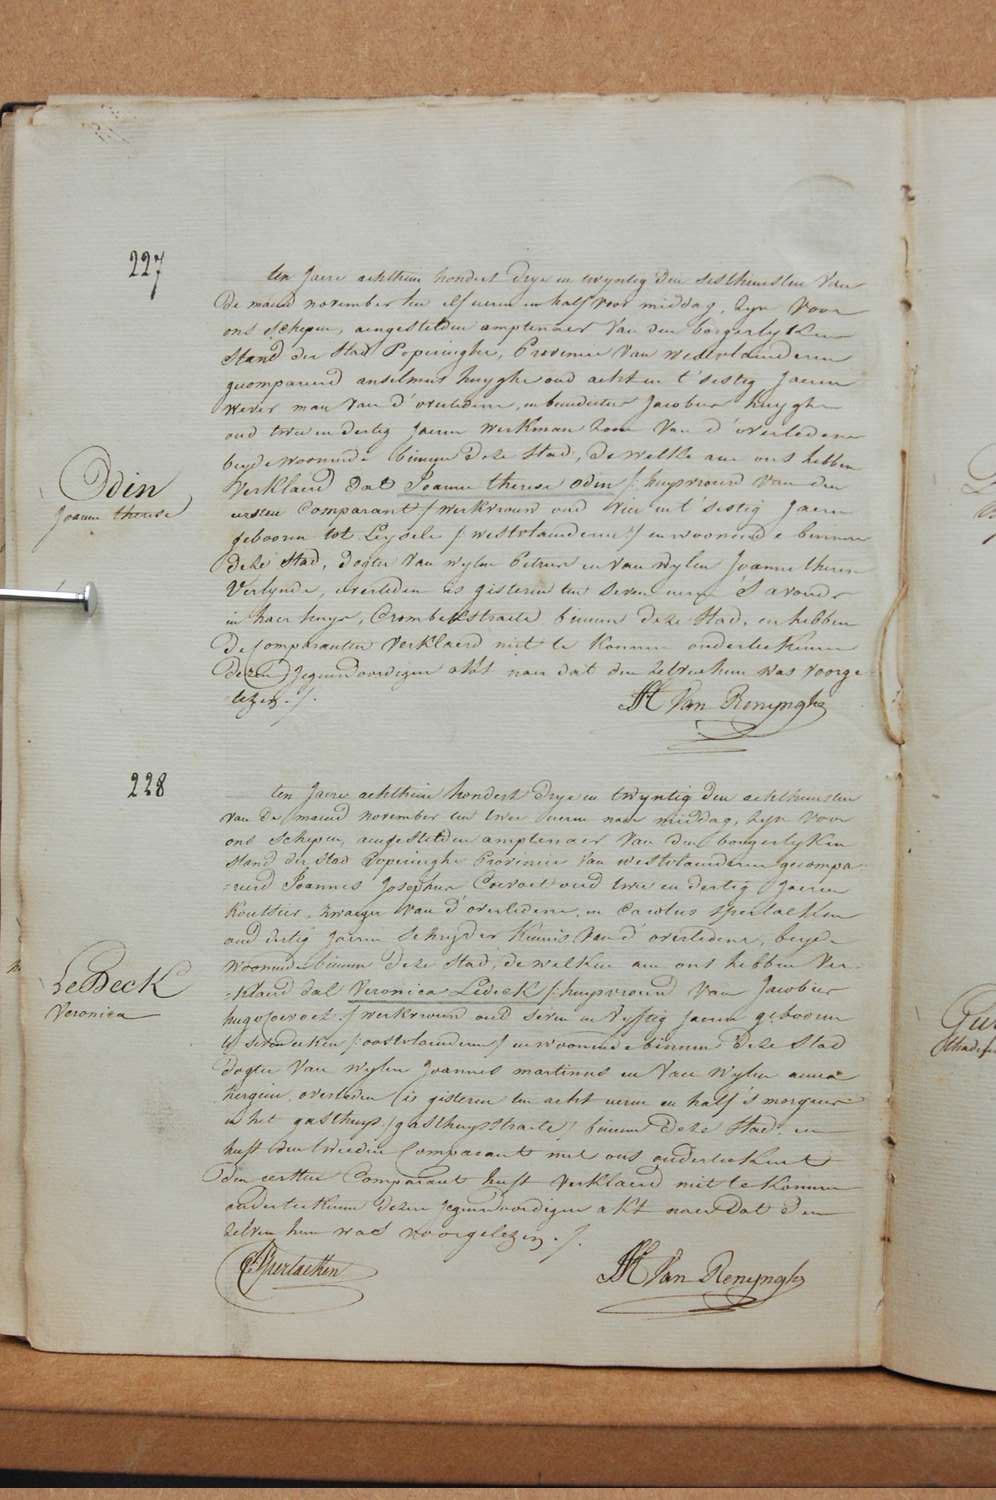 227
ten Jaere achthien hondert drye en twyntig den sesthiensten van
de maend november ten elf ueren en half voor middag, zyn voor
ons schepen, aengestelden amptenaer van den borgerlyken
stand der stad Poperinghe, Provincie van westvlaenderen
gecompareerd anselmus huyghe oud acht en t'sestig Jaeren
wever man van d'overledene, en benedictus Jacobus huyghe
oud twee en dertig Jaeren werkman zoon van d'overledene
beyde woonende binnen deze stad, de welke aen ons hebben
Odin
Joanne therese
verklaerd dat Joanne therese odin /: huysvrouw van den
eersten comparant / werkvrouw oud vier en t'sestig Jaeren
gebooren tot Leysele /: westvlaenderen :/ en woonende binnen
deze stad, dogter van wylen Petrus en van wylen Joanne therese
Verlynde, overleden is gisteren ten seven ueren s'avonds
in haer huys, Crombekstraete binnen deze stad, en hebben
de comparanten verklaerd niet te konnen onderteekenen
dezen Jegenwoordigen akt naer dat den zelven hun was voorge-
lezen ./.
Van Renynghe
228
ten Jaere achthien hondert drye en twyntig den achthiensten
van de maend november ten twee ueren naer middag, zyn voor
ons schepen, aengestelden amptenaer van den borgerlyken
stand der stad Poperinghe Provincie van westvlaenderen gecompa-
-reerd Joannes Josephus Coevoet oud twee en dertig Jaeren
koutsier, zwaeger van d'overledene, en Carolus Sperlaeken
oud dertig Jaeren schryder kennis van d'overledene, beyde
woonende binnen deze stad, de welken aen ons hebben ver-
LeDeck
Veronica
-klaerd dat Veronica Ledeck /: huysvrouw van Jacobus
hugo Coevoet :/ werkvrouw oud seven en vyftig Jaeren gebooren
te /: oostvlaenderen :/ en woonende binnen deze stad
dogter van wylen Joannes martinus en van wylen anna
overleden is gisteren ten acht ueren en half s'morgens
in het gasthuys /: gasthuysstraete :/ binnen deze stad, en
heeft den tweeden comparant met ons onderteekent
den eersten Comparant heeft verklaerd niet te konnen
onderteekenen dezen jegenwoordigen akt naer dat den
zelven hun was voorgelezen ./.
C Sperlaeken
Van Renynghe